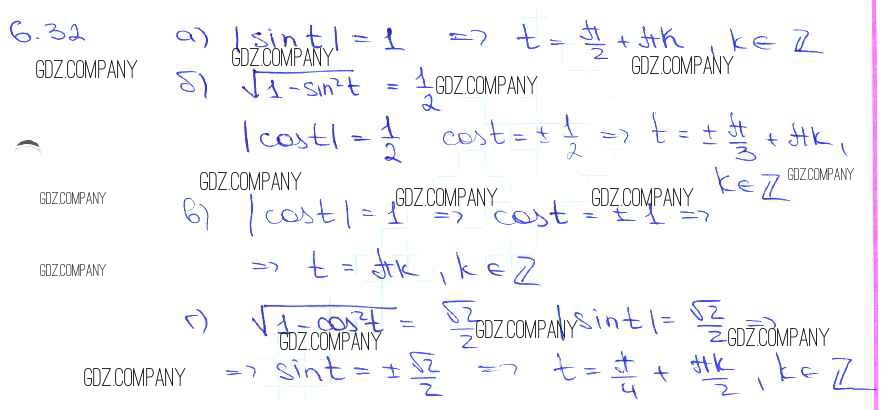 6.32 а) |sin t| = 1 => t = π/2 + πk, k ∈ ℤ
GDZ.COMPANY GDZ.COMPANY GDZ.COMPANY
б) √(1 - sin²t) = 1/2 GDZ.COMPANY
|cos t| = 1/2 cos t = ± 1/2 => t = ± π/3 + πk,
GDZ.COMPANY k ∈ ℤ GDZ.COMPANY
GDZ.COMPANY GDZ.COMPANY GDZ.COMPANY
в) |cos t| = 1 => cos t = ± 1 =>
=> t = πk, k ∈ ℤ
GDZ.COMPANY
г) √(1 - cos²t) = √2/2 |sin t| = √2/2 =>
GDZ.COMPANY GDZ.COMPANY GDZ.COMPANY
=> sin t = ± √2/2 => t = π/4 + πk/2, k ∈ ℤ
GDZ.COMPANY